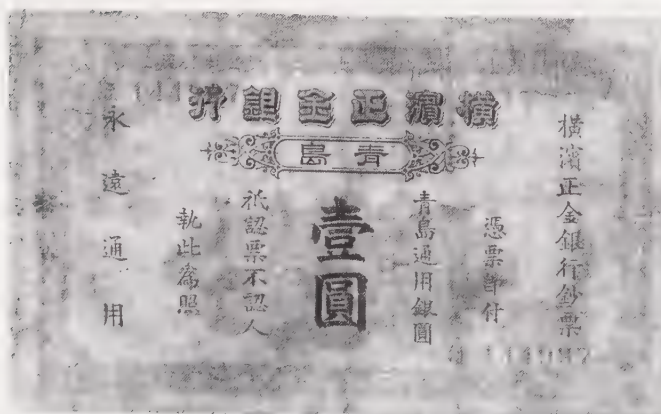 橫濱正金銀行
青島
橫濱正金銀行鈔票
憑票卽付
青島通用銀圓
壹圓
祇認票不認人
執此為照
永遠通用